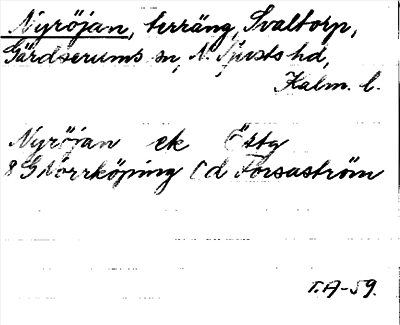 Nyröjan, terräng, Svaltorp,
Gärdserums sn, N. Tjusts hd,
Kalm. l.
Nyröjan ek Östg
8 G Norrköping C d Forsaström
T.A-59.